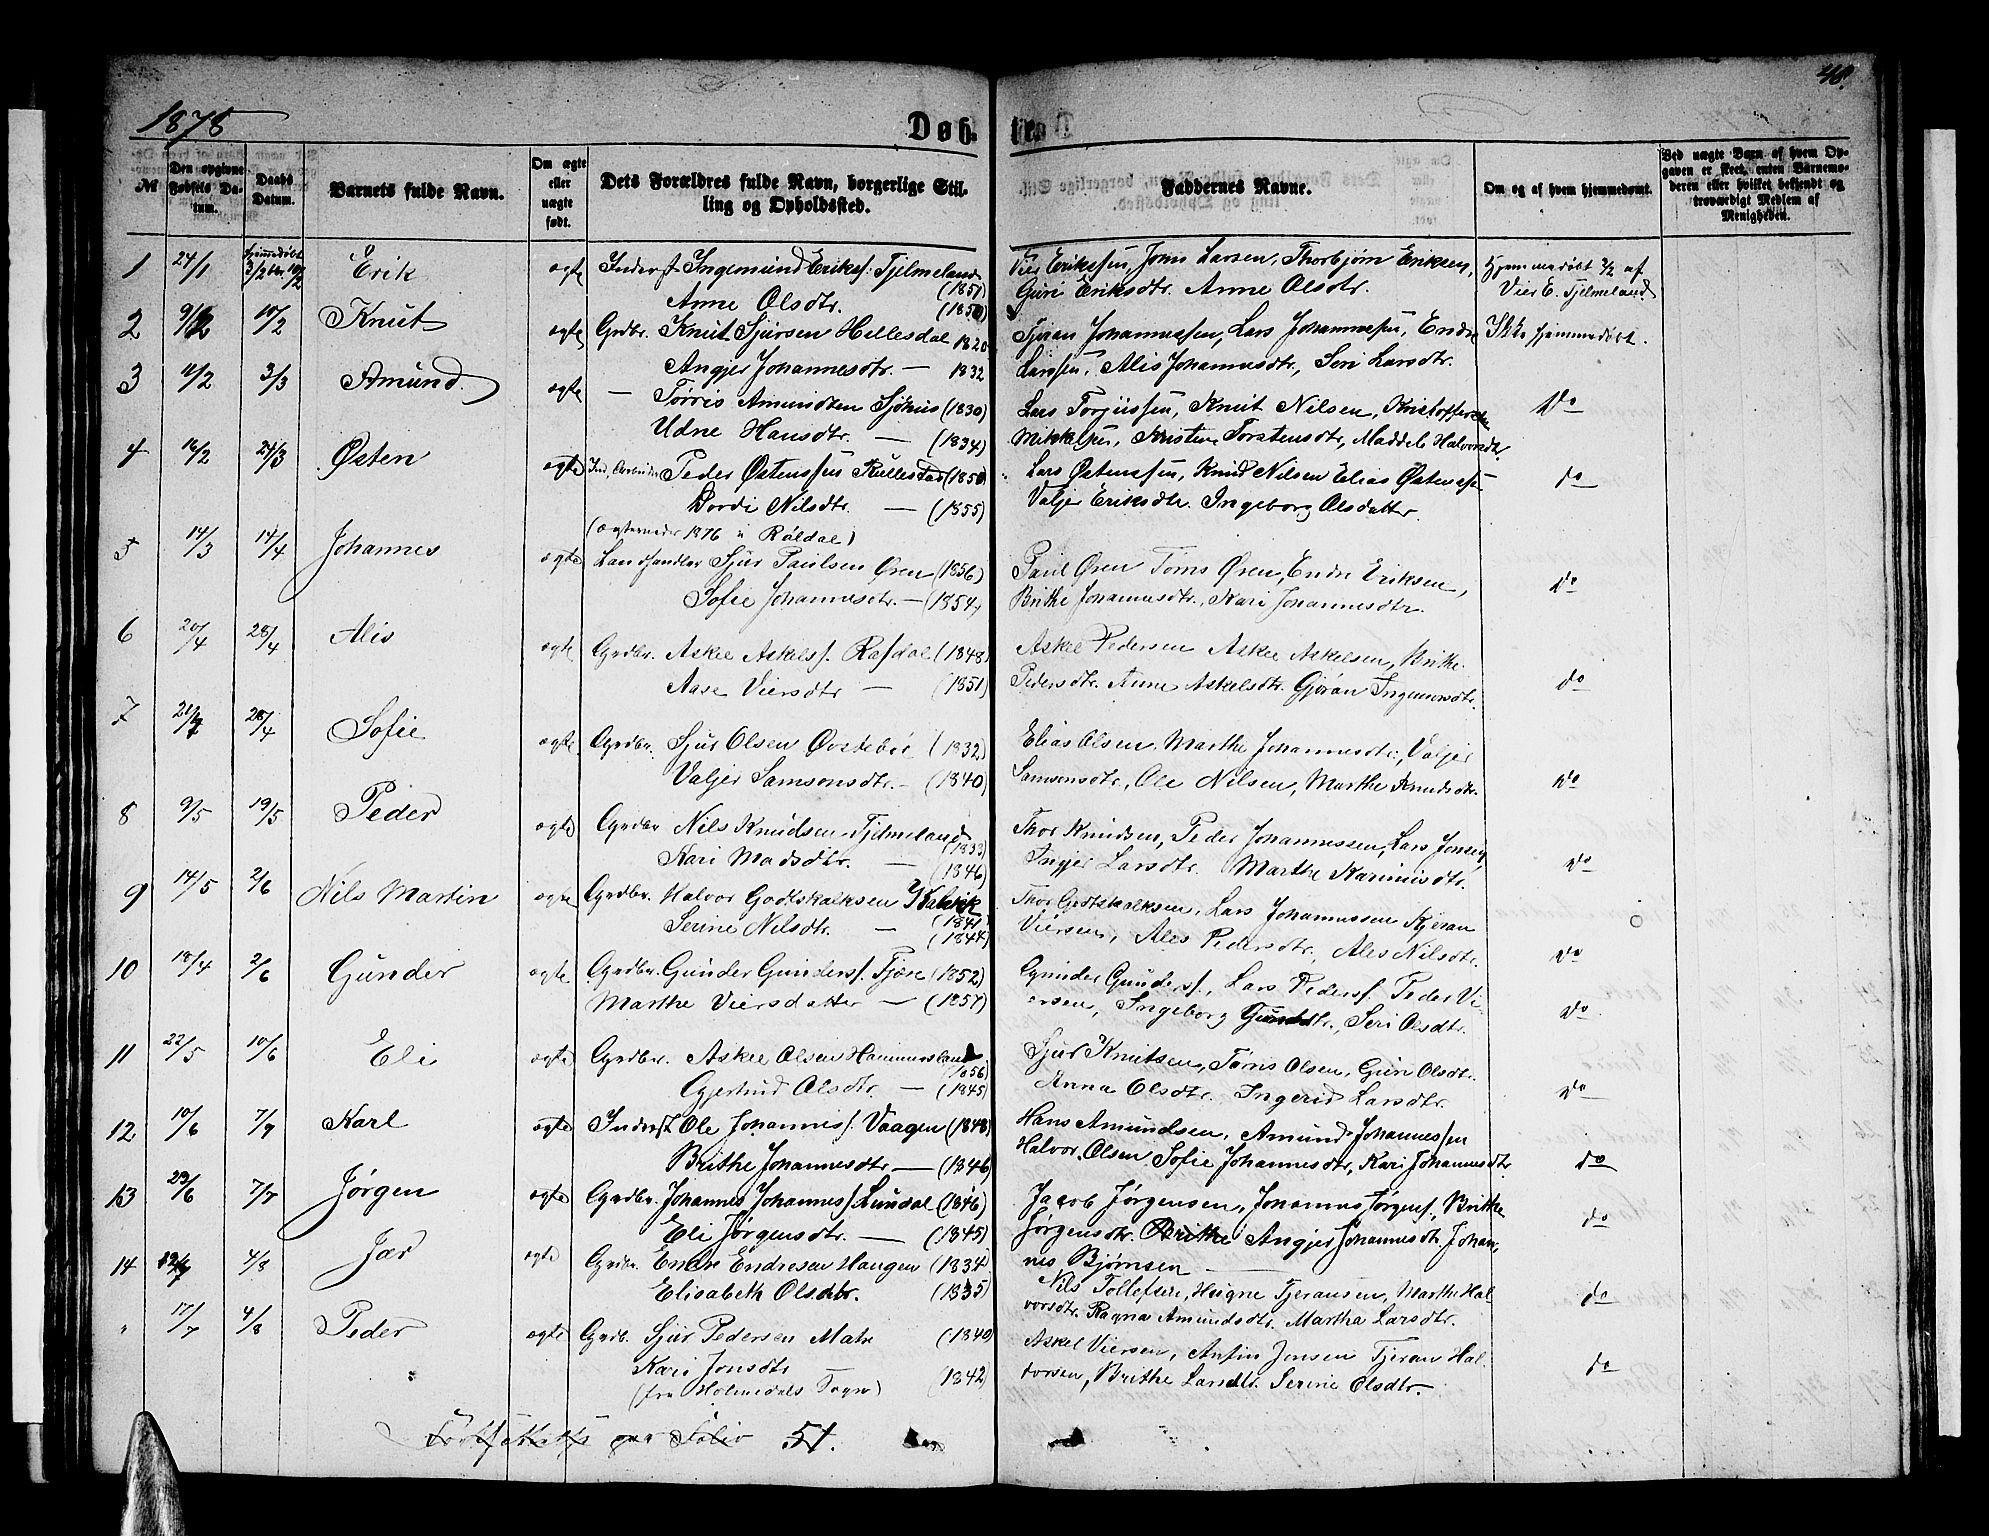 1878
48.
Døb
te.
№
Den opgivne Fødsels Datum.
Daabs Datum.
Barnets fulde Navn.
Om ægte eller uægte født.
Dets Forældres fulde Navn, borgerlige Stilling og Opholdssted.
Faddernes Navne.
Om og af hvem hjemmedøbt.
Ved uægte Barn af hvem Opgaven er skeet, enten Barnemoderen eller hvilket bekjendt og troværdigt Medlem af Menigheden.
1 24/1 hjemmedøbt 3/2 10/2 Erik ægte Inderst Ingemund Eriks. Tjelmeland (1851)
Anne Olsdtr. (1850)
Vier Erikssen, Jons Larsen, Thorbjørn Eriksen,
Guri Eriksdtr. Anne Olsdtr.
Hjemmedøbt 3/2 af
Vier E. Tjelmeland
2 9/2 10/2 Knut ægte Grdbr. Knut Sjursen Hellesdal 1820
Angjer Johannesdtr. — 1832
Tjøran Johannessen, Lars Johannessen, Endre
Larssen, Alis Johannesdtr, Seri Larsdtr.
Ikke hjemmedøbt.
3 11/2 3/3 Amund ægte — Tørris Amundsen Sjöhus (1830)
Udne Hansdtr. — (1834)
Lars Torjussen, Knut Nilsen, Kristoffer
Mikkelsen, Kristene Torstensdtr, Maddele Halvorsdtr.
Do
4 16/2 24/3 Østen ægte Ind. Peder Østenssen Kullestad (1850)
Dordi Nilsdtr. — (1855)
(ægteviede 1876 i Røldal)
Lars Østenssen, Knud Nilsen Elias Østenss.
Valjer Eriksdtr. Ingeborg Olsdatter.
do
5 14/3 14/4 Johannes ægte Landhandler Sjur Paulsen Øren (1856)
Sofie Johannesdtr. — (1854)
Paul Øren Tøms Øren, Endre Eriksen,
Brithe Johannesdtr., Kari Johannesdtr.
do
6 20/4 28/4 Alis ægte Grdbr. Askel Askels. Rafdal (1848)
Aase Viersdtr — (1851)
Askel Pedersen Askel Askelsen, Brithe
Pedersdtr. Anne Askelsdtr. Gjøran Ingemorsdtr.
do
7 21/4 28/4 Sofie ægte Grdbr. Sjur Olsen Østebøe (1832)
Valjer Samsonsdtr. — (1840)
Elias Olsen, Marthe Johannesdtr., Valjer
Samsonsdtr., Ole Nilsen, Marthe Knudsdtr.
do
8 9/5 19/5 Peder ægte Grdbr Nils Knudsen Tjelmeland (1833)
Kari Madsdtr. — (1846)
Thor Knudsen, Peder Johannessen, Lars Jonsen,
Ingjer Larsdtr. Marthe Karinusdtr.
do
9 14/5 2/6 Nils Martin ægte Grdbr. Halvor Godtskalksen Kalvik (1841)
Serine Nilsdtr. — (1844)
Thor Godtskalksen, Lars Johannessen Kjeran
Viersen, Ales Pedersdtr., Ales Nilsdtr.
do
10 18/4 2/6 Gunder ægte Grdbr. Gunder Gunders. Fjøse (1852)
Marthe Viersdatter — (1857)
Gunder Gunders., Lars Peders. Peder Vi-
ersen, Ingeborg Gundtr., Seri Olsdtr.
do
11 22/5 10/6 Eli ægte Grdbr. Askel Olsen Hammersland 1856
Gjertrud Olsdtr. — (1845)
Sjur Knutsen, Tøms Olsen, Guri Olsdtr.
Anna Olsdtr. Ingerid Larsdtr.
do
12 10/6 7/7 Karl ægte Inderst Ole Johannes. Vaagen (1848)
Brithe Johannesdtr — (1846)
Hans Amundsen, Amund Johannessen
Halvor Olsen, Sofie Johannesdtr, Kari Johannesdtr.
do
13 23/6 7/7 Jørgen ægte Grdbr. Johannes Johannes. Lundal (1846)
Eli Jørgensdtr. — (1845)
Jacob Jørgensen, Johannes Jørgens., Brithe
Jørgensdtr. Brithe Angjer Johannesdtr. Johan-
nes Bjørnsen
do
14 12/7 4/8 Jær ægte Grdbr. Endre Endresen Haugen (1834)
Elisabeth Olsdtr. (1835)
Nils Tollefsen, Helgne Tjeransen, Marthe Hal
vorsdtr. Ragna Amundsdtr. Martha Larsdtr.
do
" 17/7 4/8 Peder ægte Grdb. Sjur Pedersen Matre (1840)
Kari Jonsdtr — (1842)
(fra Holmedals Sogn)
Askel Viersen, Anfin Jonsen Tjeran Hal-
vorsen, Brithe Larsdtr. Serine Olsdtr.
do
Fortsættes paa Folio 51.